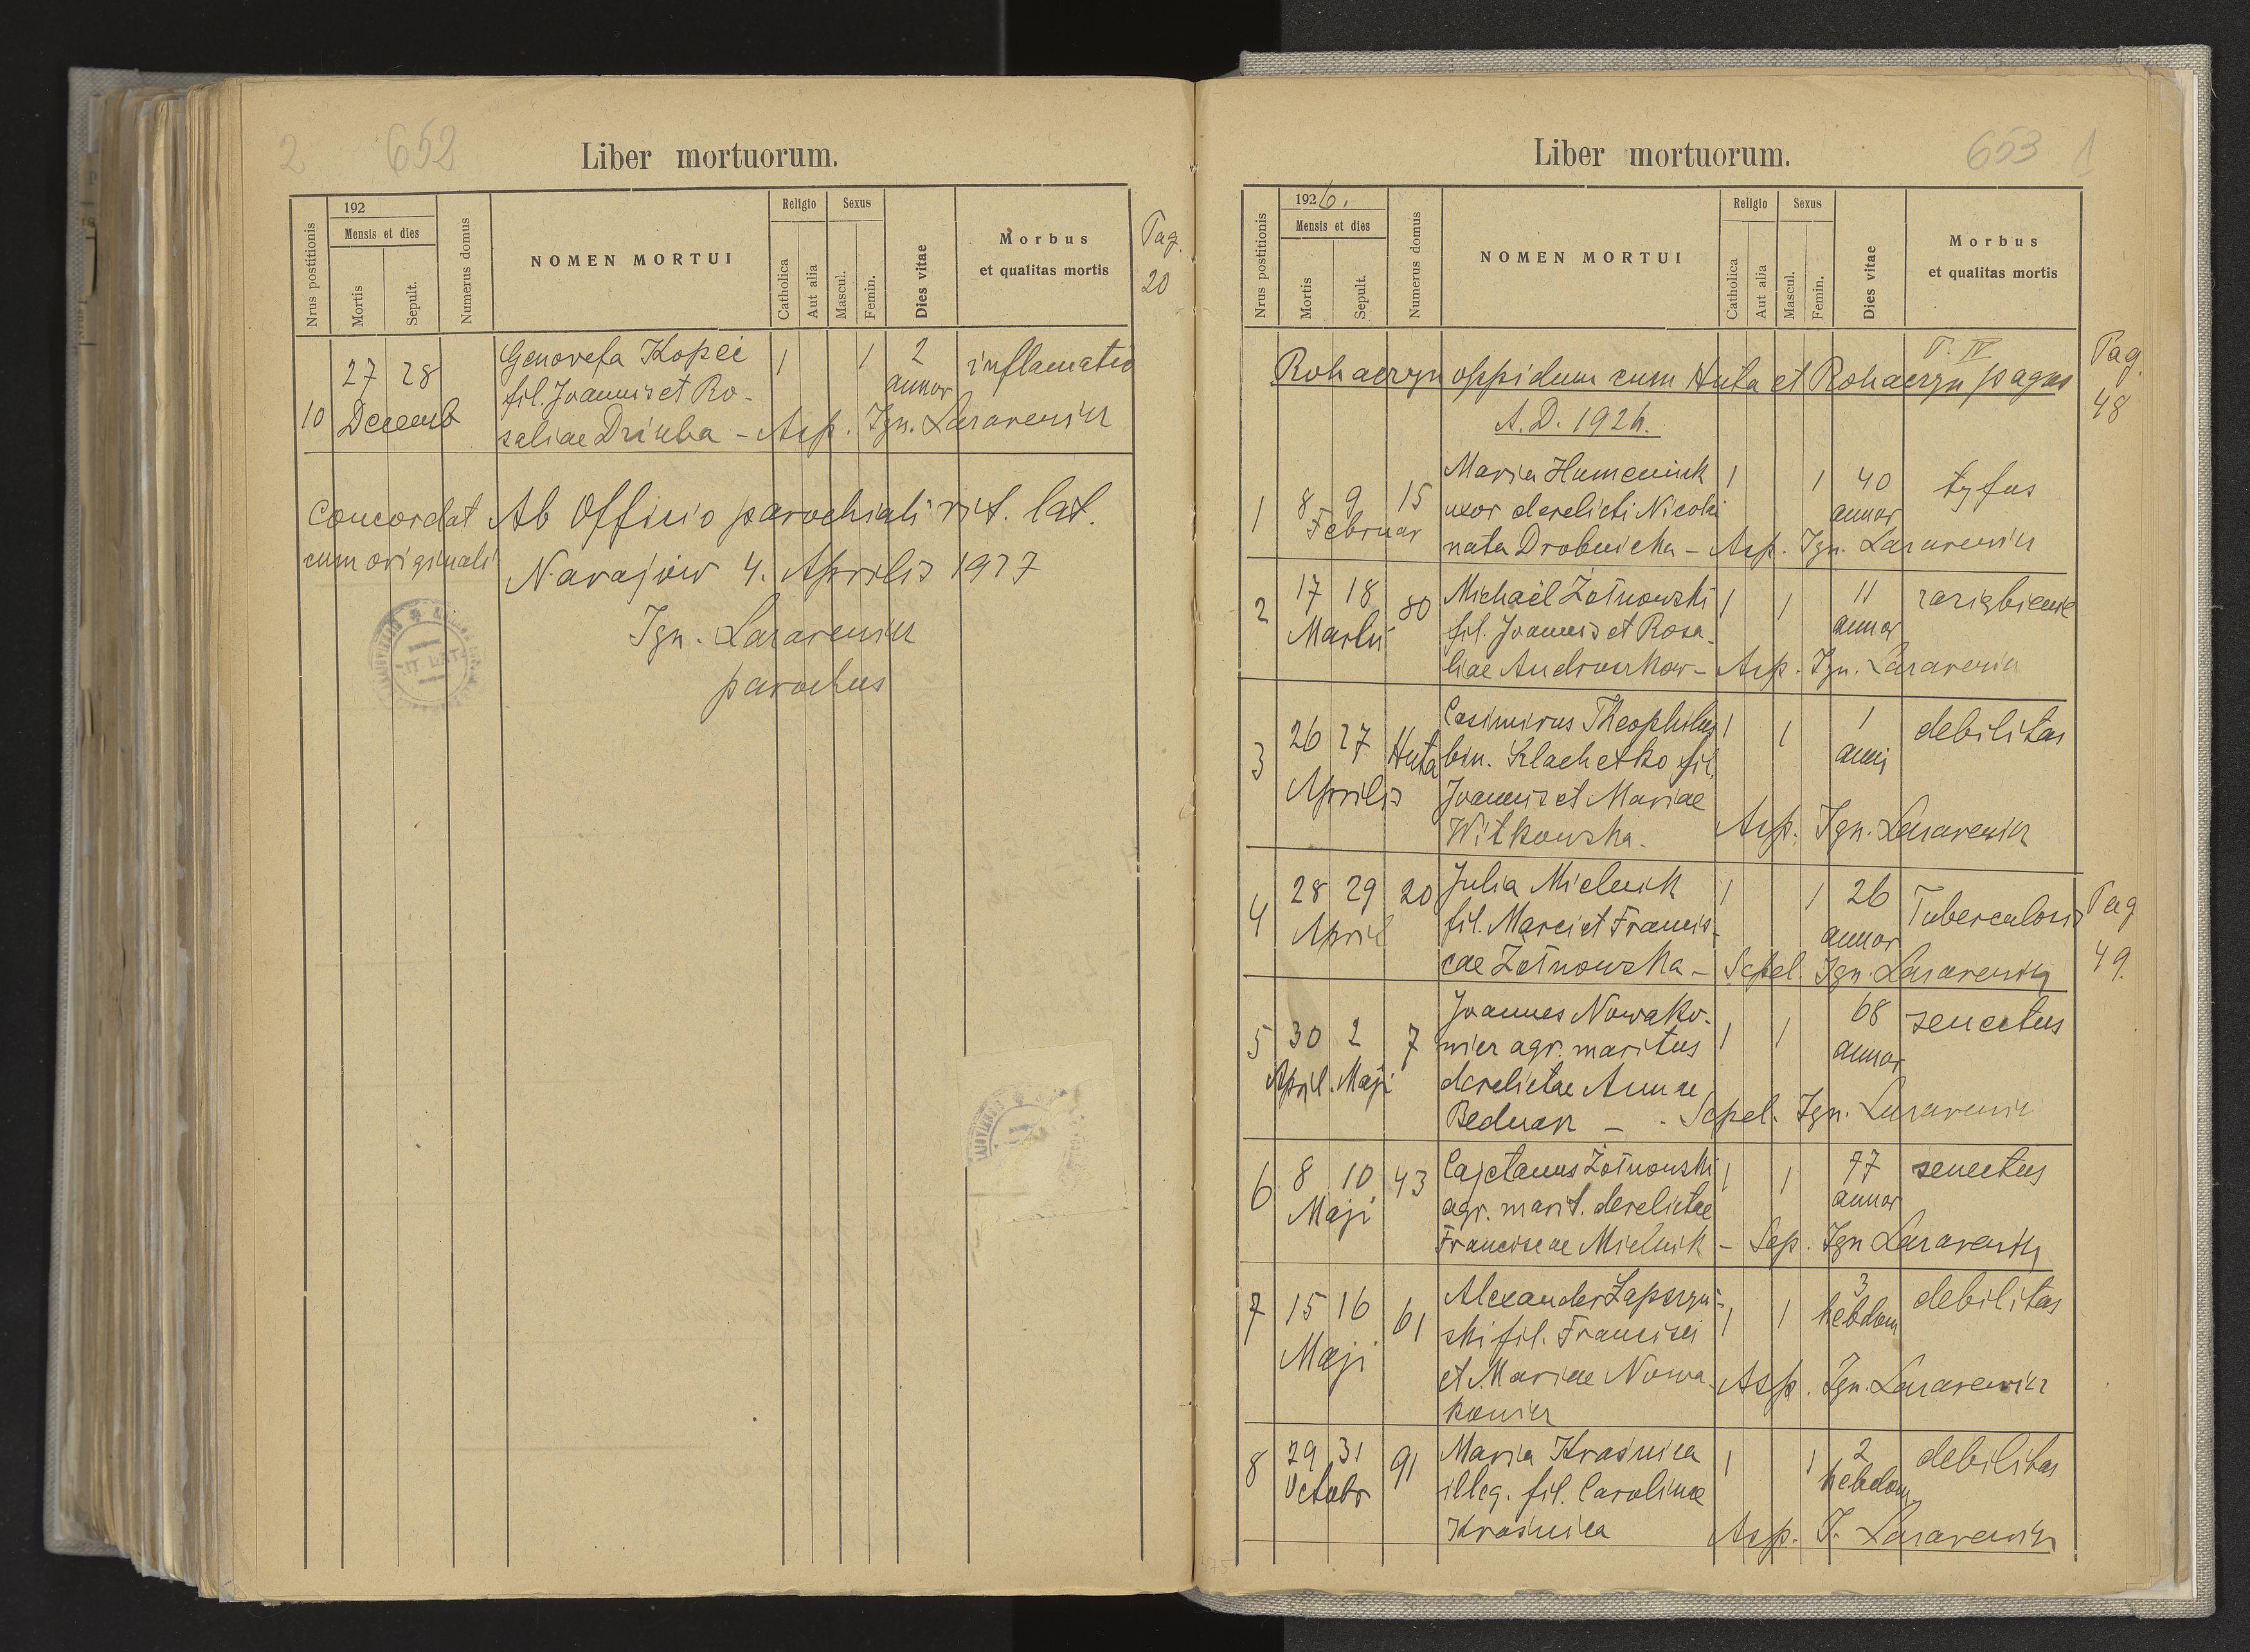 2 652
Liber mortuorum.
Nrus postitionis
192
Mensis et dies
Mortis
Sepult.
Numerus domus
NOMEN MORTUI
Religio
Catholica
Aut alia
Sexus
Mascul.
Femin.
Dies vitae
Morbus
et qualitas mortis
Pag.
20
10 27 28 Decemb
Genovefa Kopeć 1 1 2 annor inflamatio
fil. Joannis et Ro-
saliae Dziuba - Asp. Ign. Lazarewicz
Concordat Ab Officio parochiali rit. lat.
cum originali
Narajów 4. Aprilis 1927
Ign. Lazarewicz
parochus
653 1
Liber mortuorum.
Nrus postitionis
1926.
Mensis et dies
Mortis
Sepult.
Numerus domus
NOMEN MORTUI
Religio
Catholica
Aut alia
Sexus
Mascul.
Femin.
Dies vitae
Morbus
et qualitas mortis
T. IV
Pag.
48
Rohaczyn oppidum cum Huta et Rohaczyn pagus
A. D. 1926.
1 8 9 Februar 15
Maria Humeniuk 1 1 40 annor tyfus
uxor derelicti Nicolai
nata Drobnicka - Asp. Ign. Lazarewicz
2 17 18 Martii 80
Michaël Żołnowski 1 1 11 annor zaziębienie
fil. Joannis et Rosa-
liae Andruszków - Asp. Ign. Lazarewicz
3 26 27 Aprilis Huta
Casimirus Theophilus 1 1 1 anni debilitas
bin. Klachetko fil.
Joannis et Mariae
Witkowska. Asp. Ign. Lazarewicz
4 28 29 April 20
Julia Mielnik 1 1 26 annor Tuberculosis
Pag
49.
fil. Marci et Francis-
cae Żołnowska - Sepel. Ign. Lazarewicz
5 30 2 April. Maji 7
Joannes Nowako- 68 annor senectus
wicz agr. maritus 1 1
derelictae Annae
Bednarz - Sepel. Ign. Lazarewicz
6 8 10 Maji 43
Cajetanus Żołnowski 1 1 77 annor senectus
agr. marit. derelictae
Franciscae Mielnik - Sep. Ign Lazarewicz
7 15 16 Maji 61
Alexander Zapszyń- 3 hebdom debilitas
ski fil. Francisci 1 1
et Mariae Nowa-
kowicz Asp. Ign. Lazarewicz
8 29 31 Octobr 91
Maria Kraśnica 1 1 2 hebdom debilitas
illeg. fil. Carolinae
Kraśnica Asp. I. Lazarewicz